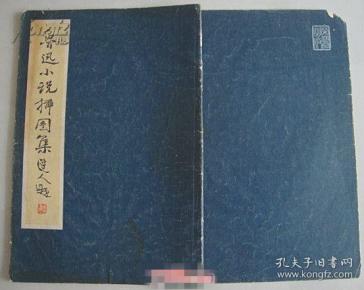 鲁迅小说插图集
孔夫子旧书网
www.kongfz.com